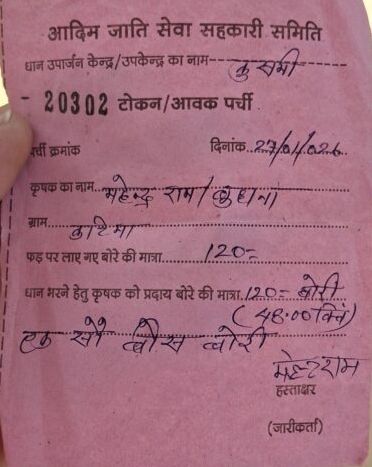 आदिम जाति सेवा सहकारी समिति
धान उपार्जन केन्द्र/उपकेन्द्र का नाम कुसमी
20302 टोकन/आवक पर्ची
र्ची क्रमांक दिनांक 27/01/026
कृषक का नाम महेन्द्र राम/बुहाना
ग्राम
फड़ पर लाए गए बोरे की मात्रा 120=
धान भरने हेतु कृषक को प्रदाय बोरे की मात्रा 120= बोरी
(48.00 क्विं)
एक सौ बीस बोरी
महेन्द्र राम
हस्ताक्षर
(जारीकर्ता)